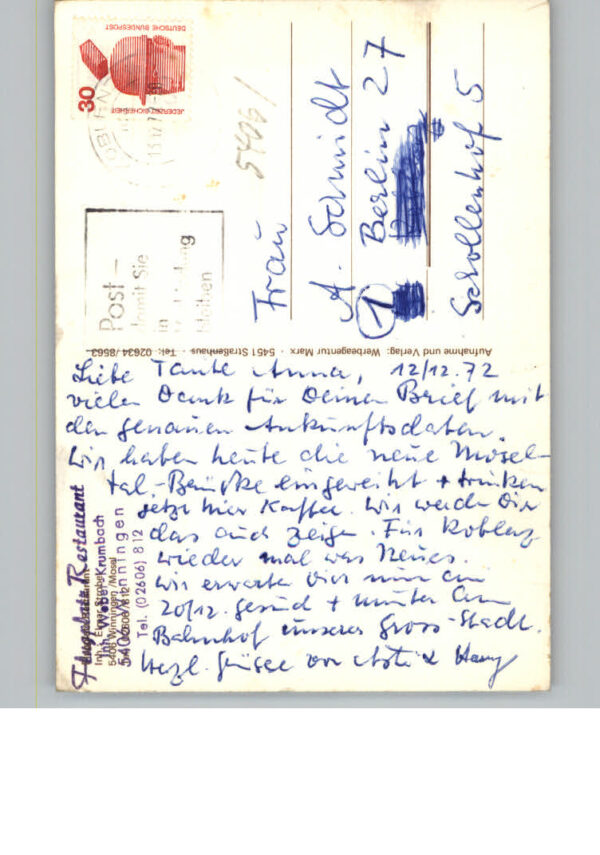 30
DEUTSCHE BUNDESPOST
JEDERZEIT SICHERHEIT
5406/
Post –
damit Sie
in
bleiben
Frau
A. Schmidt
1 Berlin 27
Scrollenhof 5
Aufnahme und Verlag: Werbeagentur Marx · 5451 Straßenhaus · Tel.: 02634/8563
Liebe Tante Anna, 12/12.72
vielen Dank für Deinen Brief mit
den genauen Ankunftsdaten.
Wir haben heute die neue Mosel-
tal-Brücke eingeweiht + trinken
jetzt hier Kaffee. Wir werden Dir
das auch zeigen. Für Koblenz
wieder mal was Neues.
Wir erwarten Dich nun am
20/12. gesund + munter am
Bahnhof unserer Gross-Stadt.
Herzl. Grüsse von
Flugplatz Restaurant
Inh. Weber-Krumbach
5406 Winningen
Tel. (02606) 812